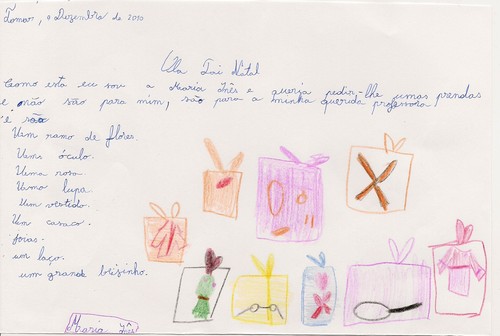 Tomar, 9 Dezembro de 2010
Olá Pai Natal
Como esta eu sou a Maria Inês e queria pedir-lhe umas prendas
e não são para mim, são para a minha querida professora
e são
Um ramo de flores.
Uns óculo.
Uma rosa.
Uma lupa.
Um vestido.
Um casaco.
joias.
um laço.
um grande beijinho.
Maria Inês